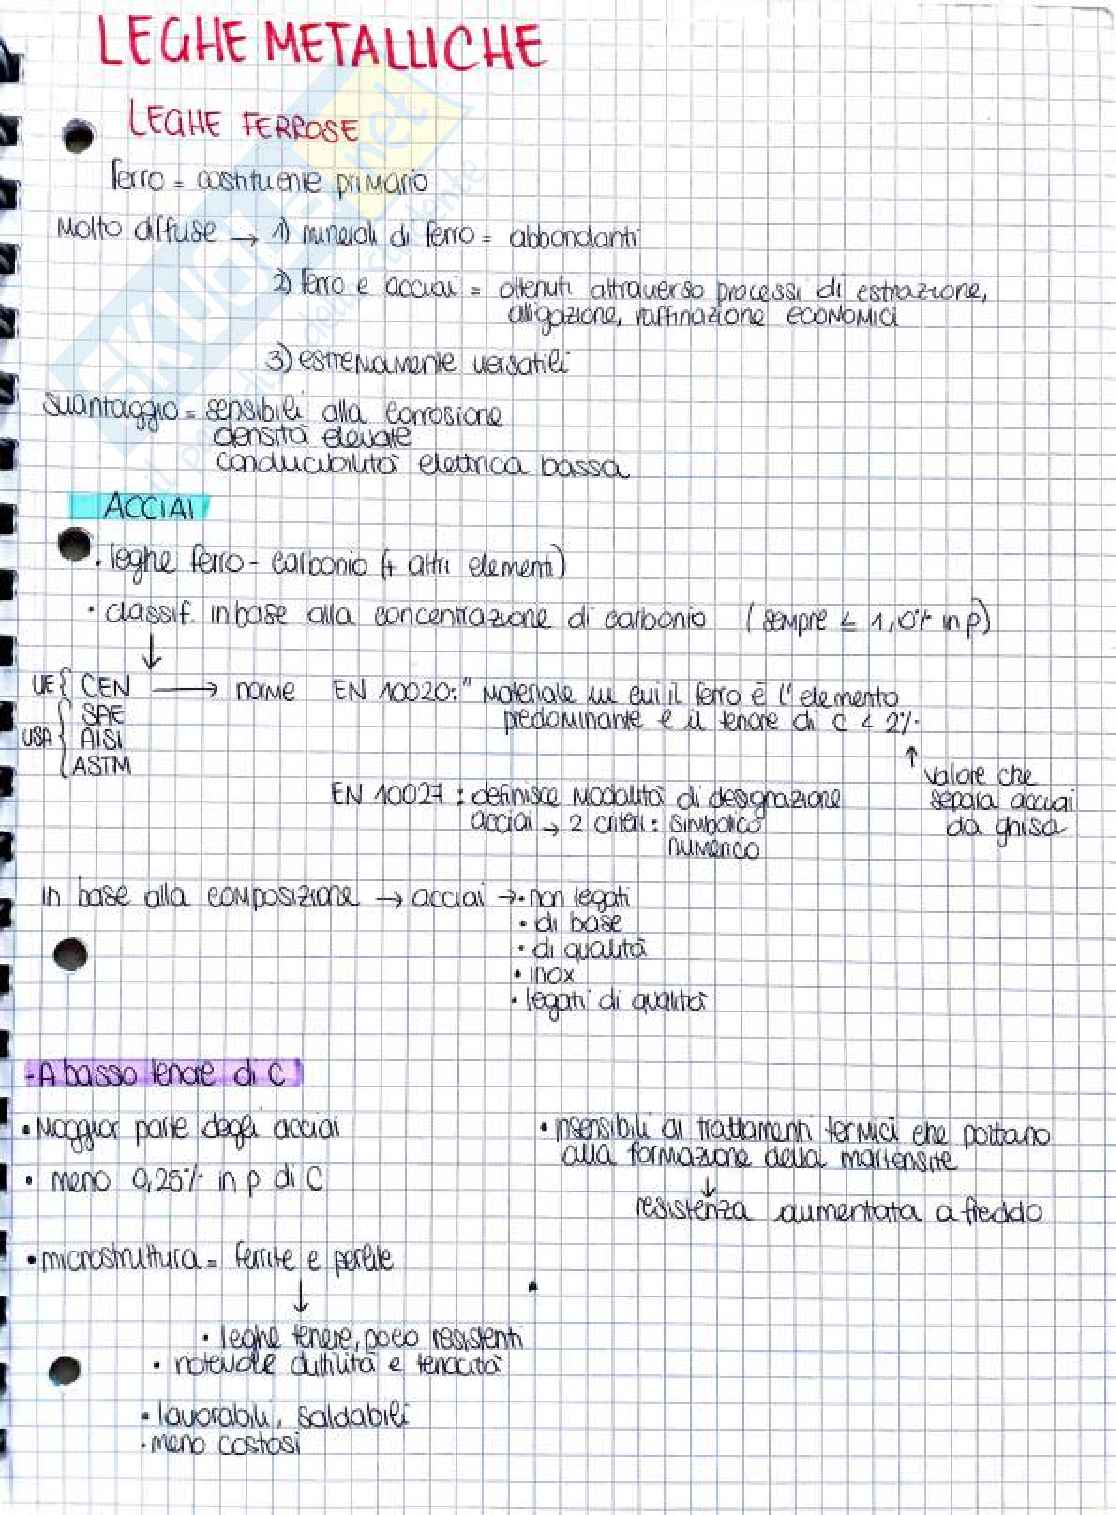 LEGHE METALLICHE
LEGHE FERROSE
ferro = costituente primario
Molto diffuse → 1) minerali di ferro = abbondanti
2) ferro e acciai = ottenuti attraverso processi di estrazione,
alligazione, raffinazione ECONOMICI
3) estremamente versatili
svantaggio = sensibili alla corrosione
densità elevate
conducibilità elettrica bassa
ACCIAI
• leghe ferro - carbonio (+ altri elementi)
• classif. in base alla concentrazione di carbonio (sempre ≤ 1,0% in p)
↓
UE { CEN → norme EN 10020: " Materiale in cui il ferro è l'elemento
predominante e il tenore di C < 2%.
USA { SAE
AISI
ASTM
↑ valore che
separa acciai
da ghisa
EN 10027 : definisce modalità di designazione
acciai → 2 criteri: simbolico
numerico
in base alla composizione → acciai → • non legati
• di base
• di qualità
• inox
• legati di qualità
- A basso tenore di C
• Maggior parte degli acciai
• meno 0,25% in p di C
• microstruttura = ferrite e perlite
↓
• leghe tenere, poco resistenti
• notevole duttilità e tenacità
• lavorabili, saldabili
• meno costosi
• insensibili ai trattamenti termici che portano
alla formazione della martensite
↓
resistenza aumentata a freddo
SKUOLA.net